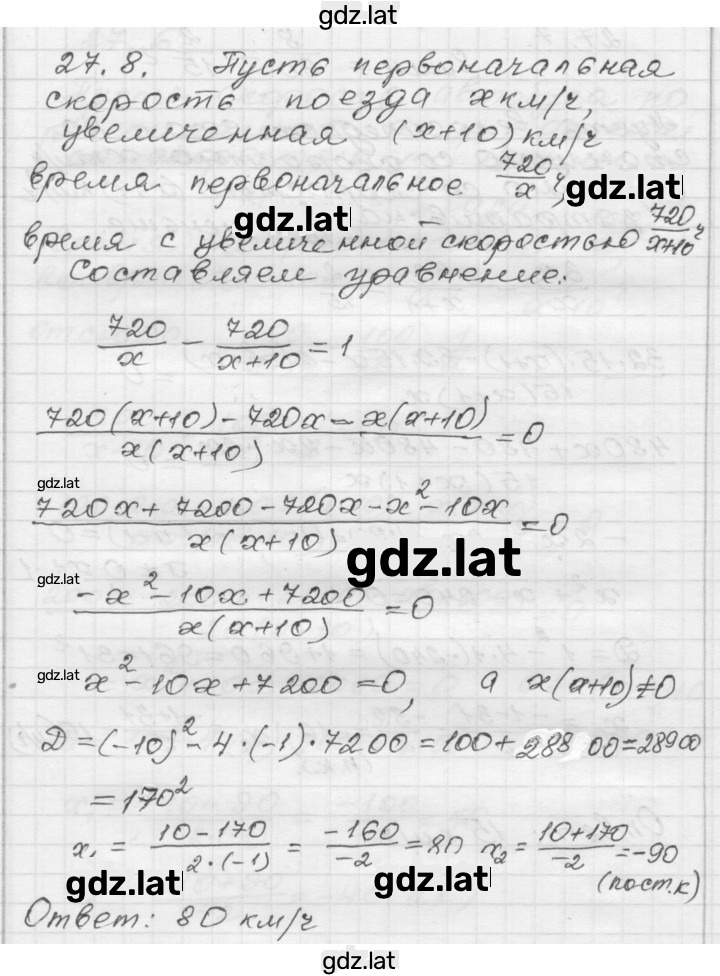 gdz.lat
27.8. Пусть первоначальная
скорость поезда x км/ч,
увеличенная (x+10) км/ч
время первоначальное 720/x ч,
gdz.lat
время с увеличенной скоростью 720/x+10 ч
Составляем уравнение:
720/x - 720/x+10 = 1
720(x+10) - 720x - x(x+10)/x(x+10) = 0
gdz.lat
720x + 7200 - 720x - x² - 10x/x(x+10) = 0
gdz.lat
gdz.lat
-x² - 10x + 7200/x(x+10) = 0
gdz.lat
x² - 10x + 7200 = 0, а x(x+10) ≠ 0
D = (-10)² - 4·(-1)·7200 = 100 + 28800= 28900
= 170²
x₁ = 10-170/2·(-1) = -160/-2 = 80 x₂ = 10+170/-2 = -90
(пост.к)
gdz.lat
gdz.lat
Ответ: 80 км/ч
gdz.lat